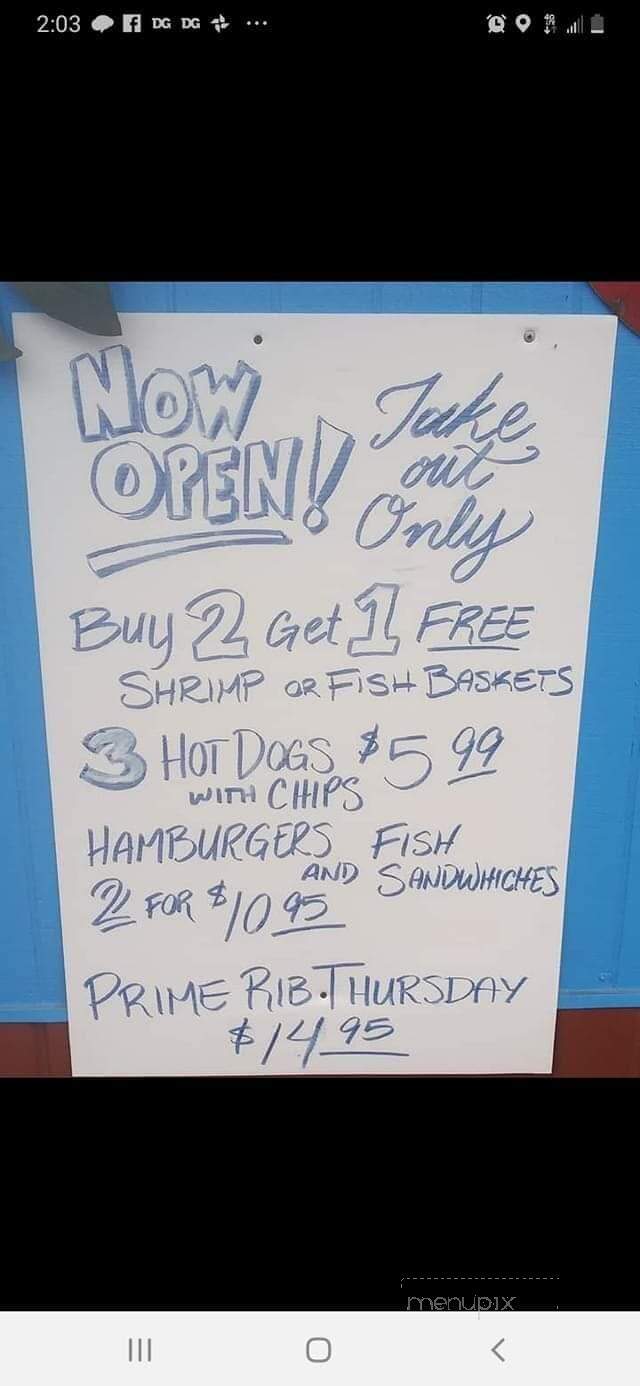 2:03 DG DG ...
4G
NOW OPEN!
Take out Only
Buy 2 Get 1 FREE
SHRIMP OR FISH BASKETS
3 HOT DOGS $5 99
WITH CHIPS
HAMBURGERS AND FISH SANDWHICHES
2 FOR $10 95
PRIME RIB THURSDAY
$14 95
menupix